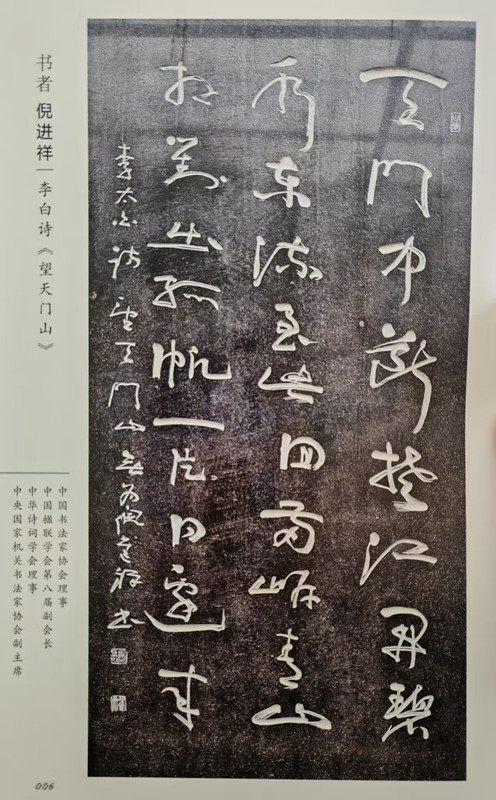 天门中断楚江開碧
水东流至此回两岸青山
相对出孤帆一片日边来
李太白诗望天门山 无为倪进祥书
书者 倪进祥｜李白诗《望天门山》
中国书法家协会理事
中国楹联学会第八届副会长
中华诗词学会理事
中央国家机关书法家协会副主席
006